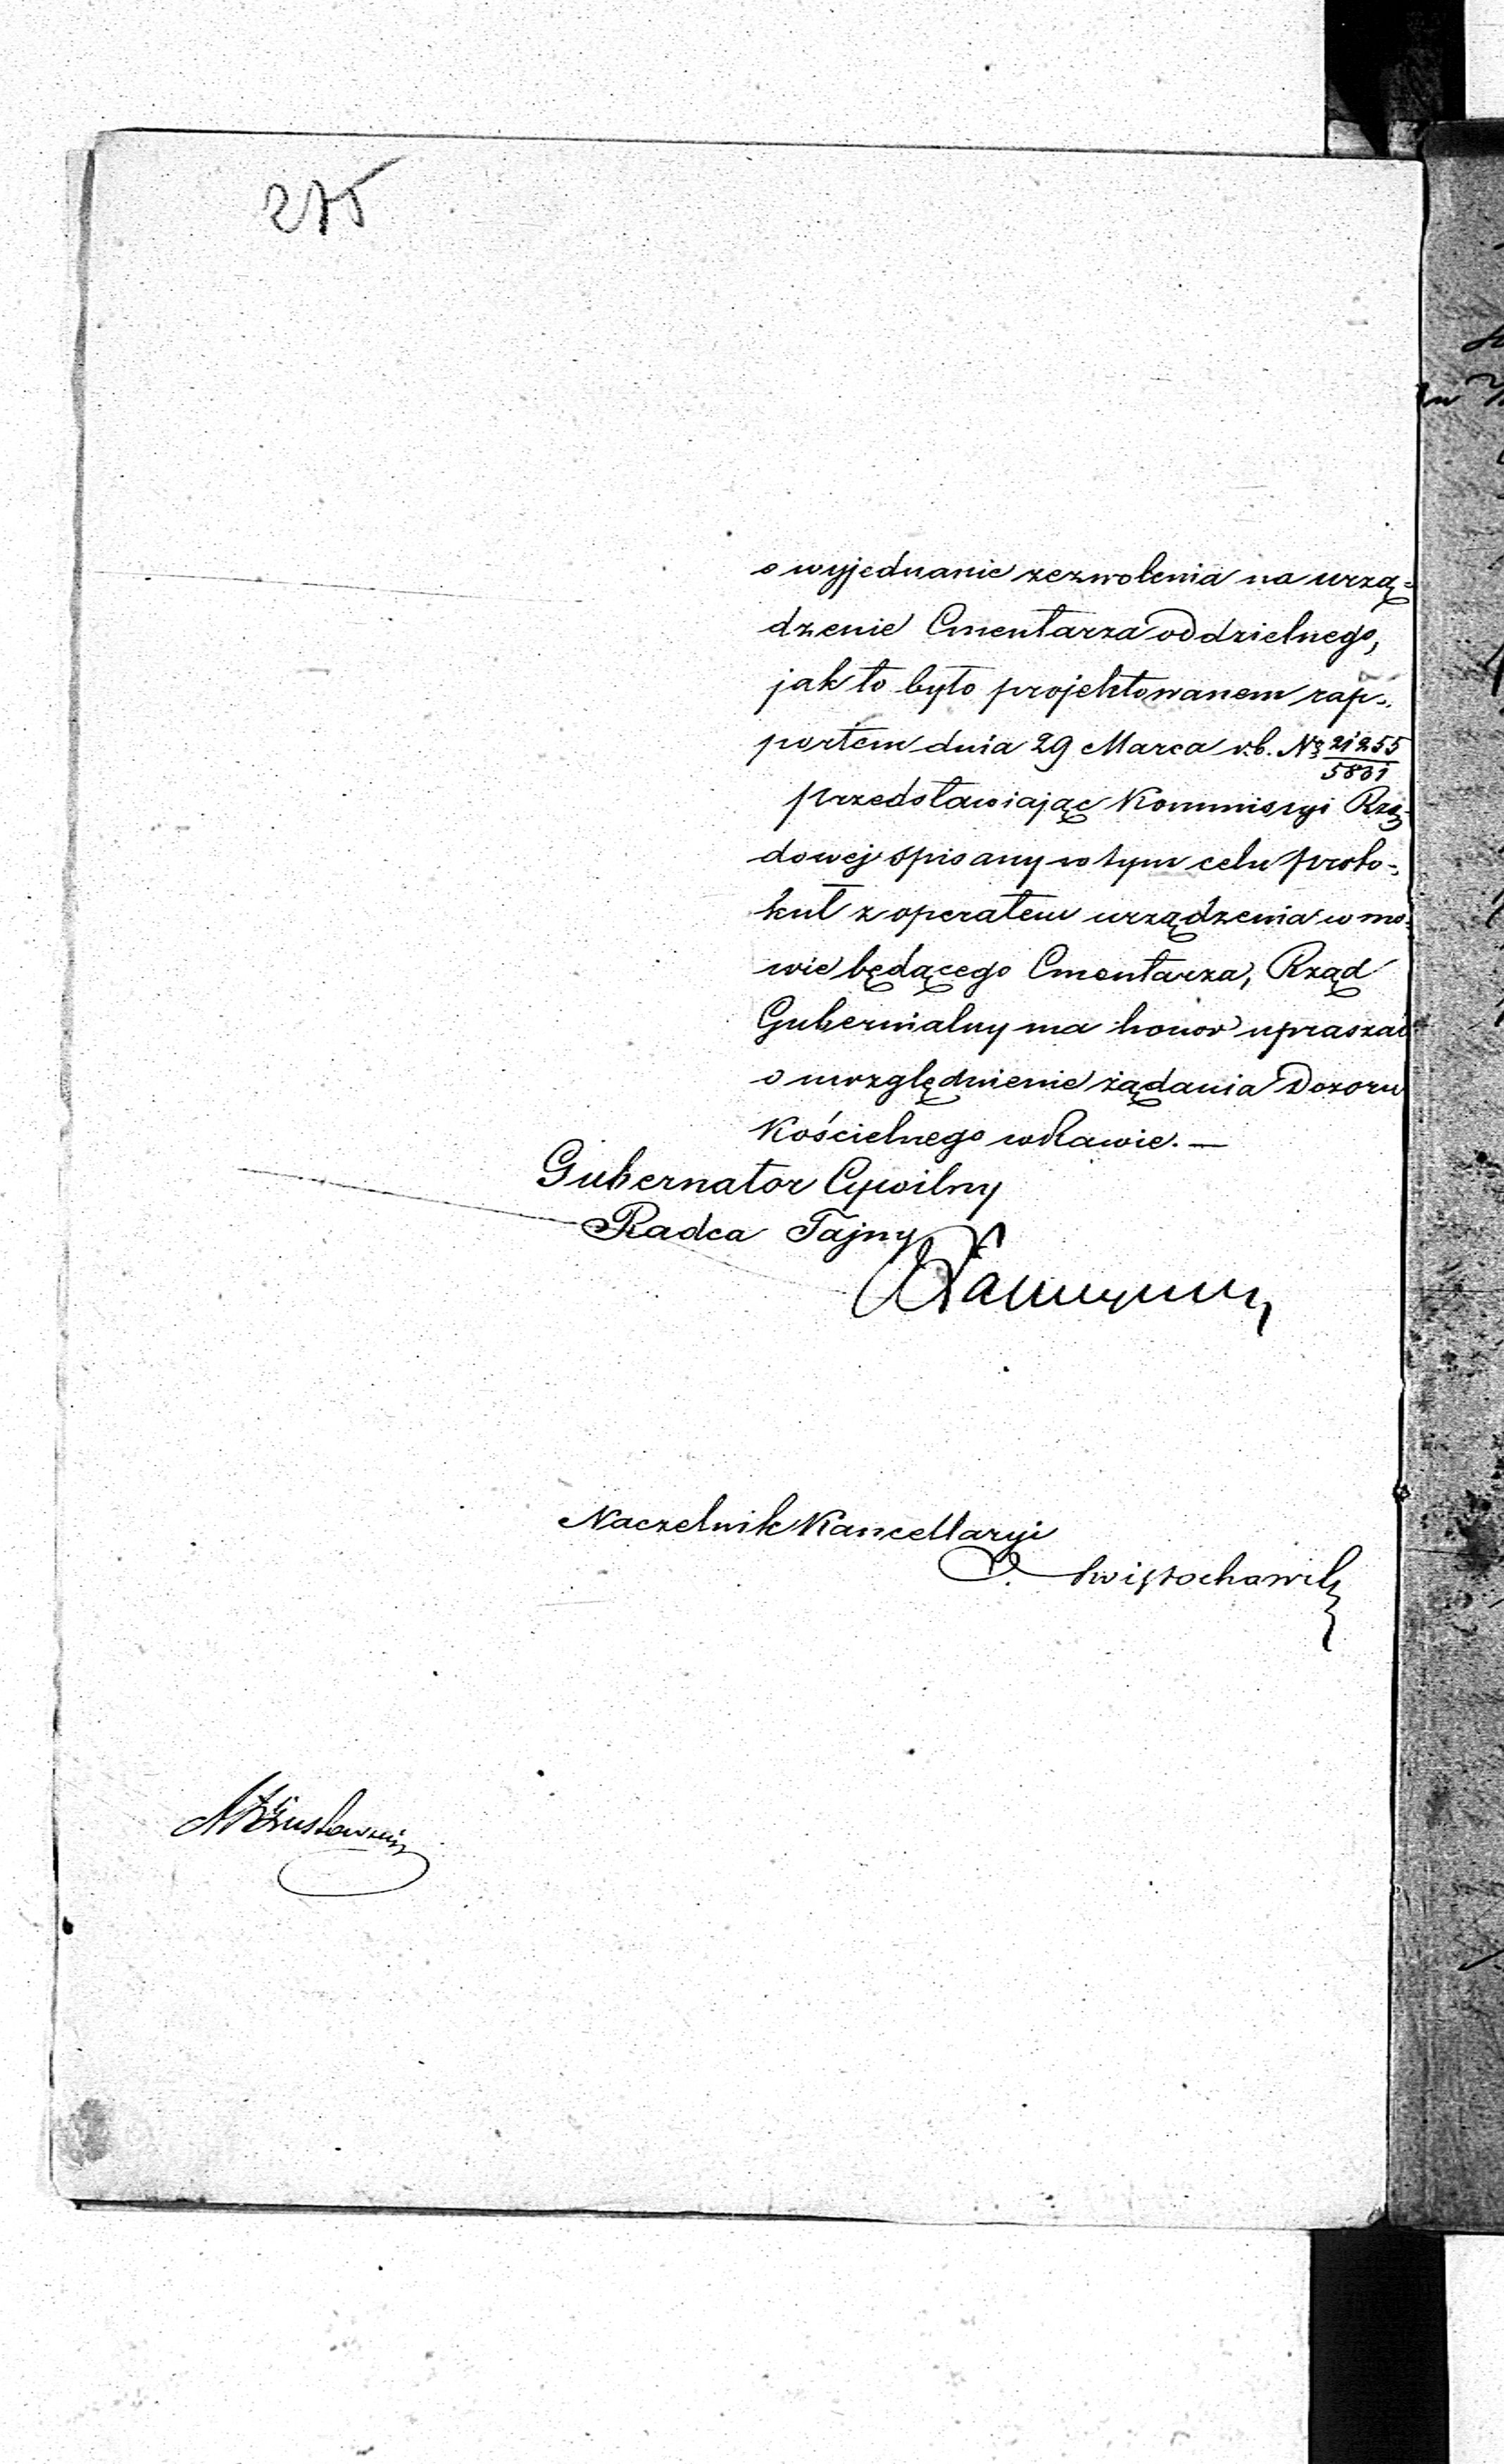 275
o wyjednanie zezwolenia na urzą=
dzenie Cmentarza oddzielnego,
jak to było projektowanem rap=
portem dnia 29 Marca r.b. Nr 21255/5831
przedstawiając Kommissyi Rzą=
dowej spisany w tym celu proto=
kuł z operatem urządzenia w mo=
wie będącego Cmentarza, Rząd
Gubernialny ma honor upraszać
o uwzględnienie żądania Dozoru
Kościelnego w Rawie. —
Gubernator Cywilny
Radca Tajny
Naczelnik Kancellaryi